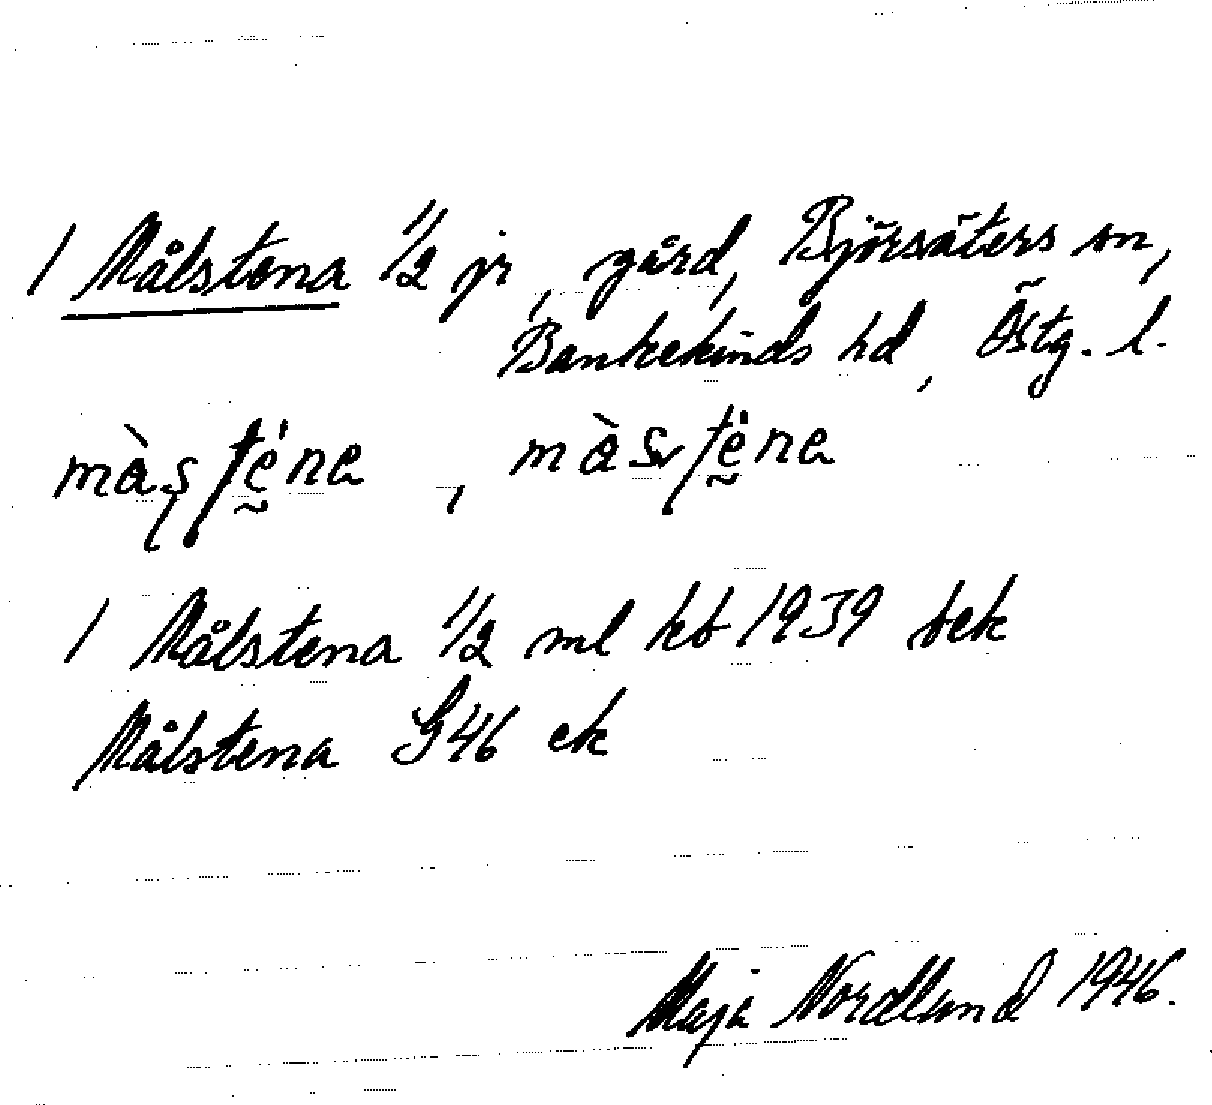 1 Målstena 1/2 jr, gård, Björsäters sn,
Bankekinds hd, Östg. l.
1 Målstena 1/2 ml kb 1939 bek
Målstena G46 ek
Maja Nordlund 1946.